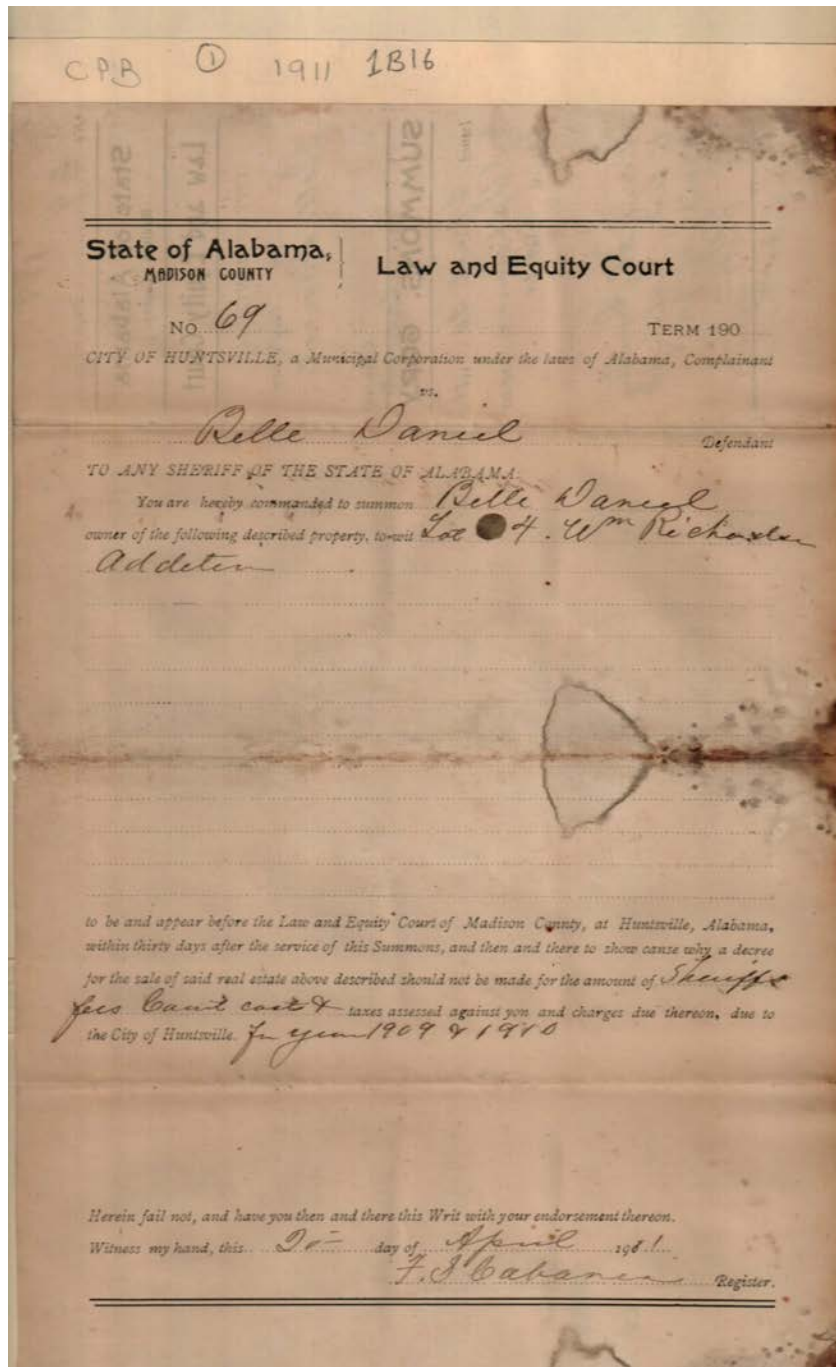 CPB ① 1911 1B16
State of Alabama, Law and Equity Court
MADISON COUNTY
No. 69 TERM 190
CITY OF HUNTSVILLE, a Municipal Corporation under the laws of Alabama, Complainant
vs.
Belle Daniel Defendant
TO ANY SHERIFF OF THE STATE OF ALABAMA.
You are hereby commanded to summon Belle Daniel
owner of the following described property, to-wit Lot 4. Wm Richardson
Addition
to be and appear before the Law and Equity Court of Madison County, at Huntsville, Alabama,
within thirty days after the service of this Summons, and then and there to show cause why a decree
for the sale of said real estate above described should not be made for the amount of Sheriffs
fees Court cost & taxes assessed against you and charges due thereon, due to
the City of Huntsville. for year 1909 & 1910
Herein fail not, and have you then and there this Writ with your endorsement thereon.
Witness my hand, this day of April 1911
Register.